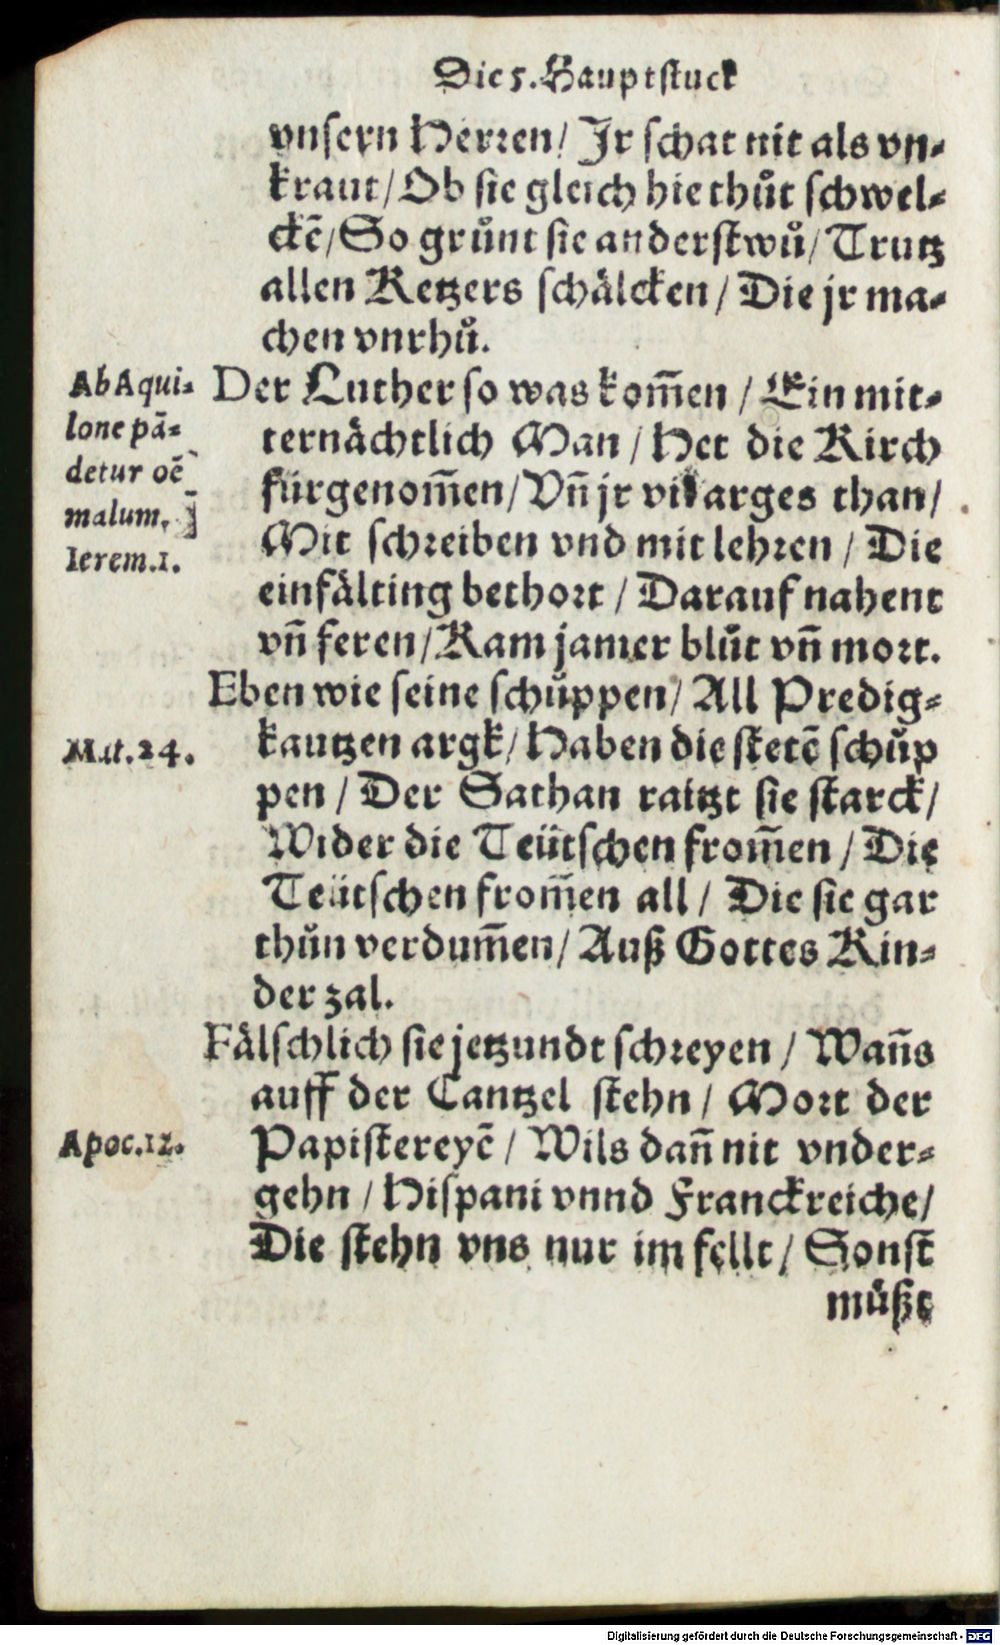 Die 5. Hauptstuck
vnsern Herren/ Jr schat nit als vn-
kraut/ Ob sie gleich hie thůt schwel-
ckē/ So grůnt sie anderstwů/ Trutz
allen Ketzers schålcken/ Die jr ma-
chen vnrhů.
Ab Aqui-
lone pā-
detur oē
malum,
Ierem.1.
Der Luther so was kom̄en/ Ein mit-
ternåchtlich Man/ Het die Kirch
fürgenom̄en/ Vn̄ jr vil arges than/
Mit schreiben vnd mit lehren/ Die
einfålting bethort/ Darauf nahent
vn̄ feren/ Kam jamer blůt vn̄ mort.
Eben wie seine schůppen/ All Predig-
Mat.24.
kautzen argk/ Haben die stetē schůp
pen/ Der Sathan raitzt sie starck/
Wider die Teütschen from̄en/ Die
Teütschen from̄en all/ Die sie gar
thůn verdum̄en/ Auß Gottes Kin-
der zal.
Fålschlich sie jetzundt schreyen/ Wan̄s
auff der Cantzel stehn/ Mort der
Apoc.12.
Papistereyē/ Wils dan̄ nit vnder-
gehn/ Hispani vnnd Franckreiche/
Die stehn vns nur im fellt/ Sonst
můßt
Digitalisierung gefördert durch die Deutsche Forschungsgemeinschaft - DFG